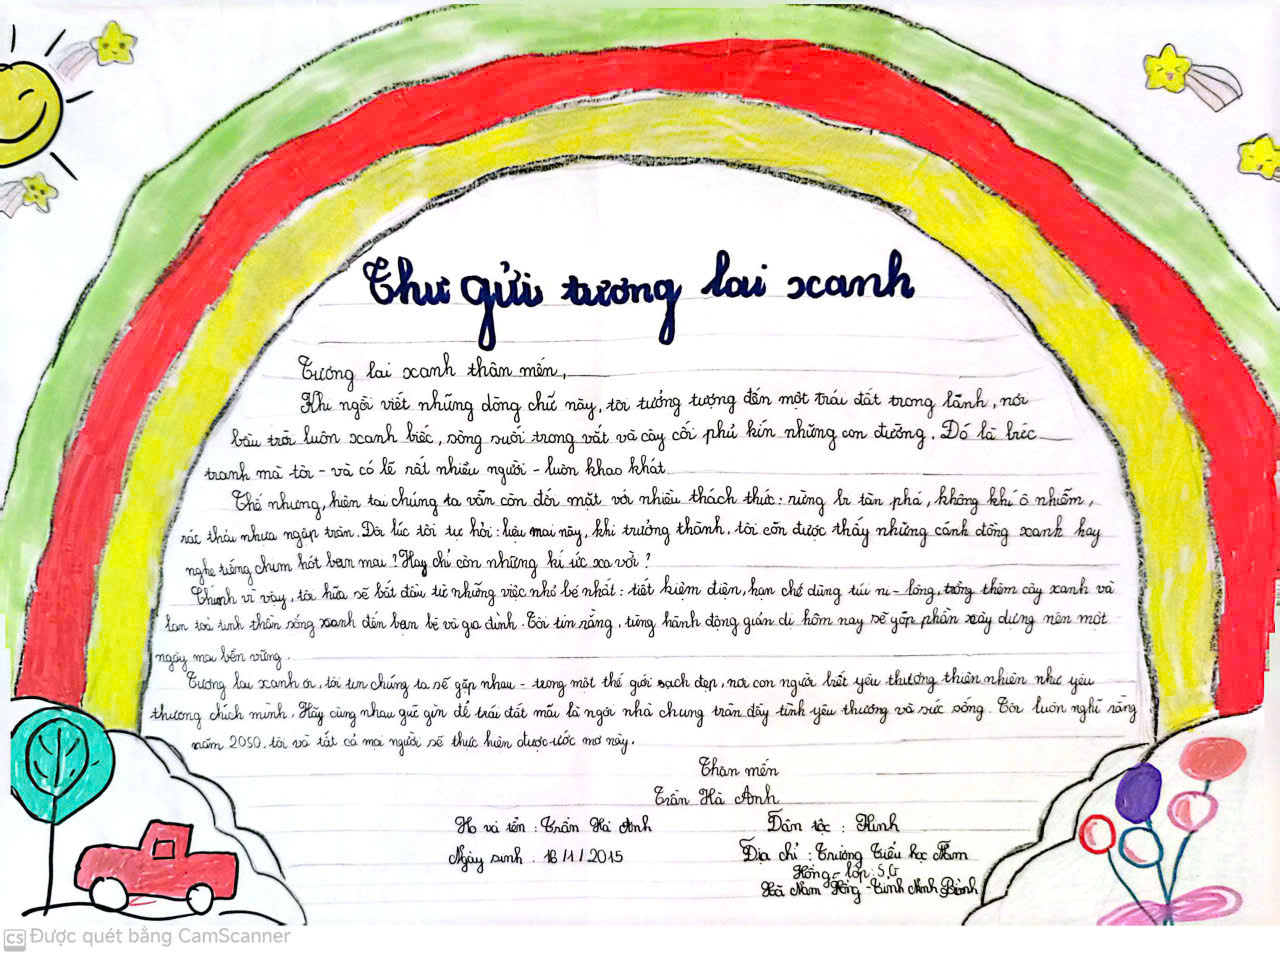 Thư gửi tương lai xanh
Tương lai xanh thân mến,
Khi ngồi viết những dòng chữ này, tôi tưởng tượng đến một trái đất trong lành, nơi
bầu trời luôn xanh biếc, sông suối trong vắt và cây cối phủ kín những con đường. Đó là bức
tranh mà tôi - và có lẽ rất nhiều người - luôn khao khát.
Thế nhưng, hiện tại chúng ta vẫn còn đối mặt với nhiều thách thức: rừng bị tàn phá, không khí ô nhiễm,
rác thải nhựa ngập tràn. Đôi lúc tôi tự hỏi: liệu mai này, khi trưởng thành, tôi còn được thấy những cánh đồng xanh hay
nghe tiếng chim hót ban mai? Hay chỉ còn những kí ức xa vời?
Chính vì vậy, tôi hứa sẽ bắt đầu từ những việc nhỏ bé nhất: tiết kiệm điện, hạn chế dùng túi ni-lông, trồng thêm cây xanh và
lan toả tinh thần sống xanh đến bạn bè và gia đình. Tôi tin rằng, từng hành động giản dị hôm nay sẽ góp phần xây dựng nên một
ngày mai bền vững.
Tương lai xanh ơi, tôi tin chúng ta sẽ gặp nhau - trong một thế giới sạch đẹp, nơi con người biết yêu thương thiên nhiên như yêu
thương chích mình. Hãy cùng nhau giữ gìn để trái đất mãi là ngôi nhà chung tràn đầy tình yêu thương và sức sống. Tôi luôn nghĩ rằng
năm 2050, tôi và tất cả mọi người sẽ thực hiện được ước mơ này.
Thân mến
Trần Hà Anh
Họ và tên : Trần Hà Anh
Dân tộc : Kinh
Ngày sinh : 16/1/2015
Địa chỉ : Trường Tiểu học Nam
Hồng - lớp: 5G
Xã Nam Hồng - Tỉnh Ninh Bình
CS Được quét bằng CamScanner